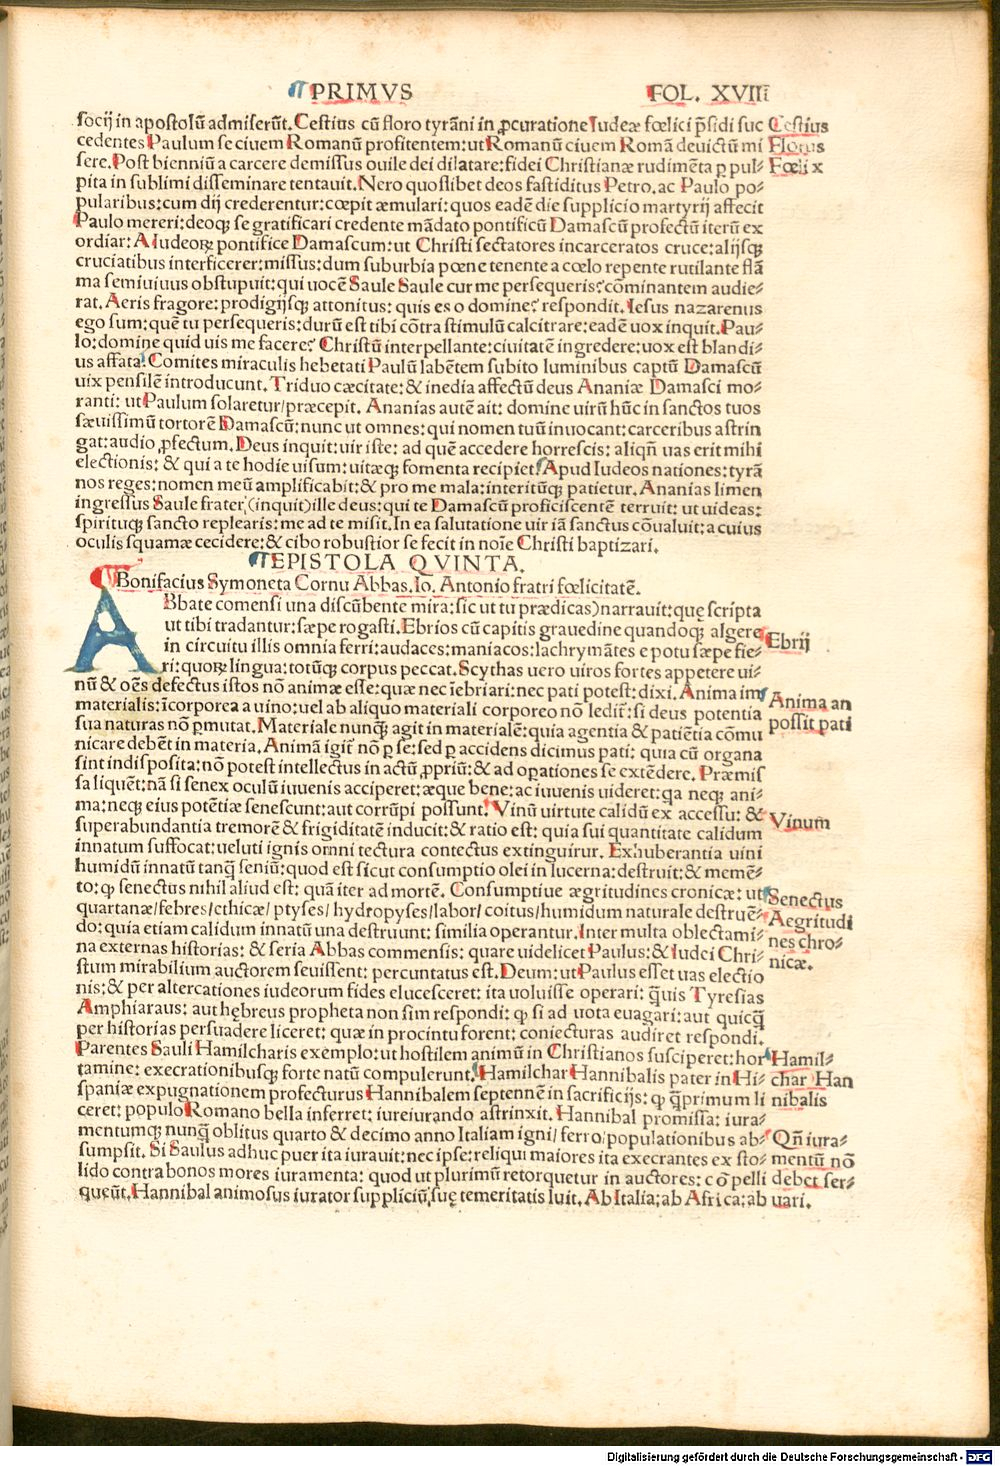 ¶PRIMVS FOL. XVIII
socij in apostolũ admiserũt. Cestius cũ floro tyrãni in ꝓcuratione Iudeæ fœlici p̃sidi suc
cedentes Paulum se ciuem Romanũ profitentem: ut Romanũ ciuem Romã deuictũ mi
sere. Post bienniũ a carcere demissus ouile dei dilatare: fidei Christianæ rudimẽta ꝑ pul⸗
pita in sublimi disseminare tentauit. Nero quoslibet deos fastiditus Petro. ac Paulo po⸗
pularibus: cum dij crederentur: cœpit æmulari: quos eadẽ die supplicio martyrij affecit
Paulo mereri: deoqꝫ se gratificari credente mãdato pontificũ Damascũ profectũ iterũ ex
ordiar: A Iudeoꝝ pontifice Damascum: ut Christi sectatores incarceratos cruce: alijsqꝫ
cruciatibus interficerer: missus: dum suburbia pœne tenente a cœlo repente rutilante flã
ma semiuiuus obstupuit: qui uocẽ Saule Saule cur me persequeris? cõminantem audie⸗
rat. Aeris fragore: prodigijsqꝫ attonitus: quis es o domine? respondit. Iesus nazarenus
ego sum: quẽ tu persequeris: durũ est tibi cõtra stimulũ calcitrare: eadẽ uox inquit. Pau⸗
lo: domine quid uis me facere? Christũ interpellante: ciuitatẽ ingredere: uox est blandi⸗
us affata. Comites miraculis hebetati Paulũ labẽtem subito luminibus captũ Damascũ
uix pensilẽ introducunt. Triduo cæcitate: & inedia affectũ deus Ananiæ Damasci mo⸗
ranti: ut Paulum solaretur/præcepit. Ananias autẽ ait: domine uirũ hũc in sanctos tuos
sæuissimũ tortorẽ Damascũ: nunc ut omnes: qui nomen tuũ inuocant: carceribus astrin
gat: audio ꝓfectum. Deus inquit: uir iste: ad quẽ accedere horrescis: aliqñ uas erit mihi
electionis: & qui a te hodie uisum: uitæqꝫ fomenta recipiet. Apud Iudeos nationes: tyrã
nos reges: nomen meũ amplificabit: & pro me mala: interitũqꝫ patietur. Ananias limen
ingressus Saule frater (inquit) ille deus: qui te Damascũ proficiscentẽ terruit: ut uideas:
spirituqꝫ sancto replearis: me ad te misit. In ea salutatione uir iã sanctus cõualuit: a cuius
oculis squamæ cecidere: & cibo robustior se fecit in noĩe Christi baptizari.
¶EPISTOLA QVINTA.
¶Bonifacius Symoneta Cornu Abbas. Io. Antonio fratri fœlicitatẽ.
ABbate comensi una discũbente mira: sic ut tu prædicas) narrauit: quę scripta
ut tibi tradantur: sæpe rogasti. Ebrios cũ capitis grauedine quandoqꝫ algere
in circuitu illis omnia ferri: audaces: maniacos: lachrymãtes e potu sæpe fie⸗
ri: quoꝝ lingua: totũqꝫ corpus peccat. Scythas uero uiros fortes appetere ui⸗
nũ & oẽs defectus istos nõ animæ esse: quæ nec ĩebriari: nec pati potest: dixi. Anima im
materialis: ĩcorporea a uino: uel ab aliquo materiali corporeo nõ ledit̃: si deus potentia
sua naturas nõ ꝑmutat. Materiale nunqꝫ̃ agit in materialẽ: quia agentia & patiẽtia cõmu
nicare debẽt in materia. Animã igit̃ nõ ꝑ se: sed ꝑ accidens dicimus pati: quia cũ organa
sint indisposita: nõ potest intellectus in actũ ꝓpriũ: & ad oꝑationes se extẽdere. Præmis
sa liquẽt: nã si senex oculũ iuuenis acciperet: æque bene: ac iuuenis uideret: qa neqꝫ ani⸗
ma: neqꝫ eius potẽtiæ senescunt: aut corrũpi possunt. Vinũ uirtute calidũ ex accessu: &
superabundantia tremorẽ & frigiditatẽ inducit: & ratio est: quia sui quantitate calidum
innatum suffocat: ueluti ignis omni tectura contectus extinguirur. Exhuberantia uini
humidũ innatũ tanq̃ seniũ: quod est sicut consumptio olei in lucerna: destruit: & memẽ⸗
to: ꝙ senectus nihil aliud est: quã iter ad mortẽ. Consumptiue ægritudines cronicæ: ut
quartanæ/febres/ethicæ/ptyses/hydropyses/labor/coitus/humidum naturale destruẽ⸗
do: quia etiam calidum innatũ una destruunt: similia operantur. Inter multa oblectami⸗
na externas historias: & seria Abbas commensis: quare uidelicet Paulus: & Iudei Chri⸗
stum mirabilium auctorem seuissent: percuntatus est. Deum: ut Paulus esset uas electio
nis: & per altercationes iudeorum fides elucesceret: ita uoluisse operari: q̃uis Tyresias
Amphiaraus: aut hębreus propheta non sim respondi: ꝙ si ad uota euagari: aut quicq̃
per historias persuadere liceret: quæ in procintu forent: coniecturas audiret respondi.
Parentes Sauli Hamilcharis exemplo: ut hostilem animũ in Christianos susciperet: hor
tamine: execrationibusqꝫ forte natũ compulerunt. Hamilchar Hannibalis pater in Hi⸗
spaniæ expugnationem profecturus Hannibalem septennẽ in sacrificijs: ꝙ q̃primum li
ceret: populo Romano bella inferret: iureiurando astrinxit. Hannibal promissa: iura⸗
mentumqꝫ nunq̃ oblitus quarto & decimo anno Italiam igni/ferro/populationibus ab⸗
sumpsit. Si Saulus adhuc puer ita iurauit: nec ipse: reliqui maiores ita execrantes ex sto⸗
lido contra bonos mores iuramenta: quod ut plurimũ retorquetur in auctores: cõpelli
queũt. Hannibal animosus iurator suppliciũ, suę temeritatis luit. Ab Italia: ab Africa: ab
Cestius
Florus
Fœlix
Ebrij
Anima an
possit pati
Vinum
Senectus
Aegritudi
nes chro⸗
nicæ.
Hamil⸗
char Han
nibalis
Qñ iura⸗
mentũ nõ
debet ser⸗
uari.
Digitalisierung gefördert durch die Deutsche Forschungsgemeinschaft - DFG